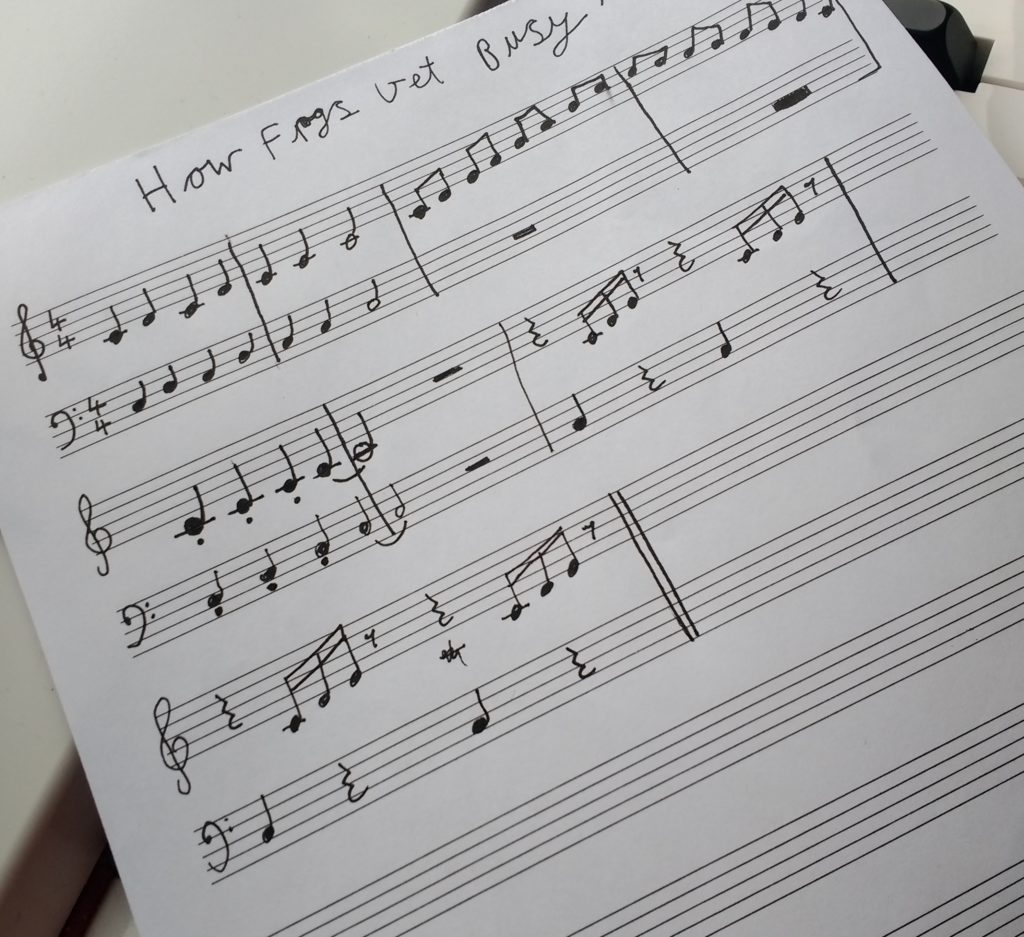 How Frogs Get Busy
4
4
4
4